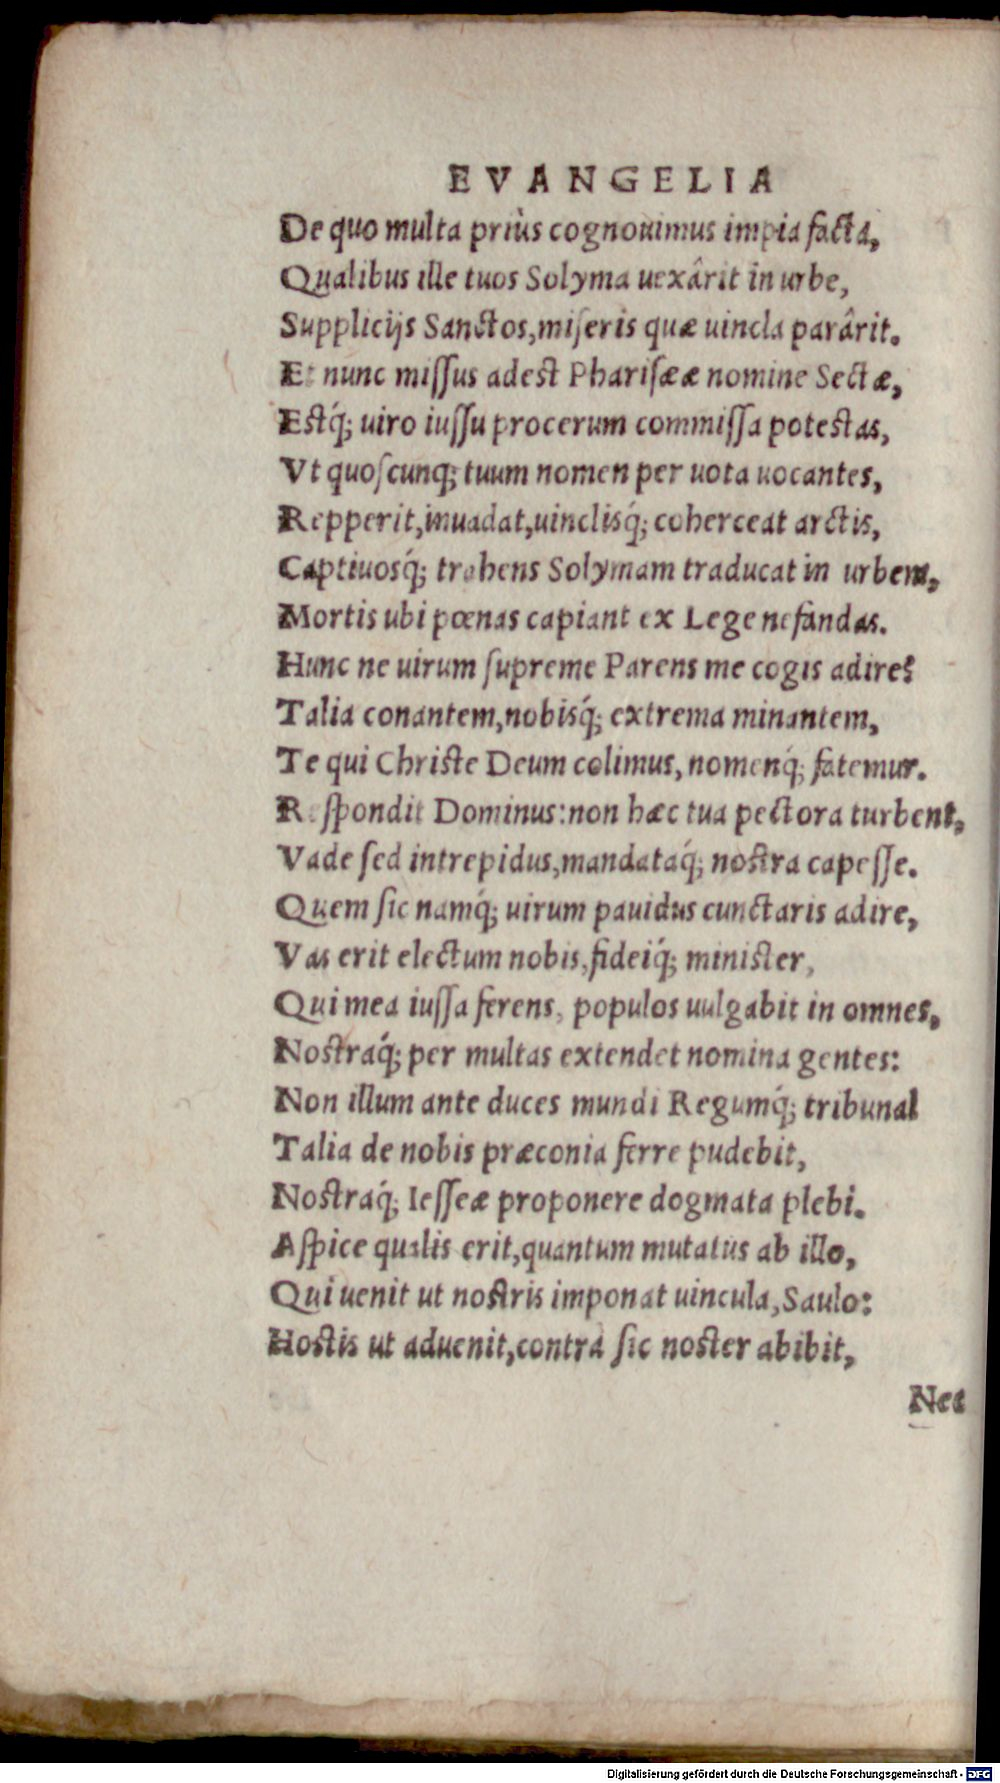 EVANGELIA
De quo multa priùs cognouimus impia facta,
Qualibus ille tuos Solyma uexârit in urbe,
Supplicijs Sanctos, miſeris quæ uincla parârit.
Et nunc miſſus adest Phariſææ nomine Sectæ,
Estq́; uiro iuſſu procerum commiſſa potestas,
Vt quoſcunq; tuum nomen per uota uocantes,
Repperit, inuadat, uinclisq́; coherceat arctis,
Captiuosq́; trahens Solymam traducat in urbem,
Mortis ubi pœnas capiant ex Lege nefandas.
Hunc ne uirum ſupreme Parens me cogis adire?
Talia conantem, nobisq́; extrema minantem,
Te qui Christe Deum colimus, nomenq́; fatemur.
Reſpondit Dominus: non hæc tua pectora turbent,
Vade ſed intrepidus, mandataq́; nostra capeſſe.
Quem ſic namq́; uirum pauidus cunctaris adire,
Vas erit electum nobis, fideiq́; minister,
Qui mea iuſſa ferens, populos uulgabit in omnes,
Nostraq́; per multas extendet nomina gentes:
Non illum ante duces mundi Regumq́; tribunal
Talia de nobis præconia ferre pudebit,
Nostraq́; Ieſſeæ proponere dogmata plebi.
Aſpice qualis erit, quantum mutatus ab illo,
Qui uenit ut nostris imponat uincula, Saulo:
Hostis ut aduenit, contra ſic noster abibit,
Nec
Digitalisierung gefördert durch die Deutsche Forschungsgemeinschaft - DFG